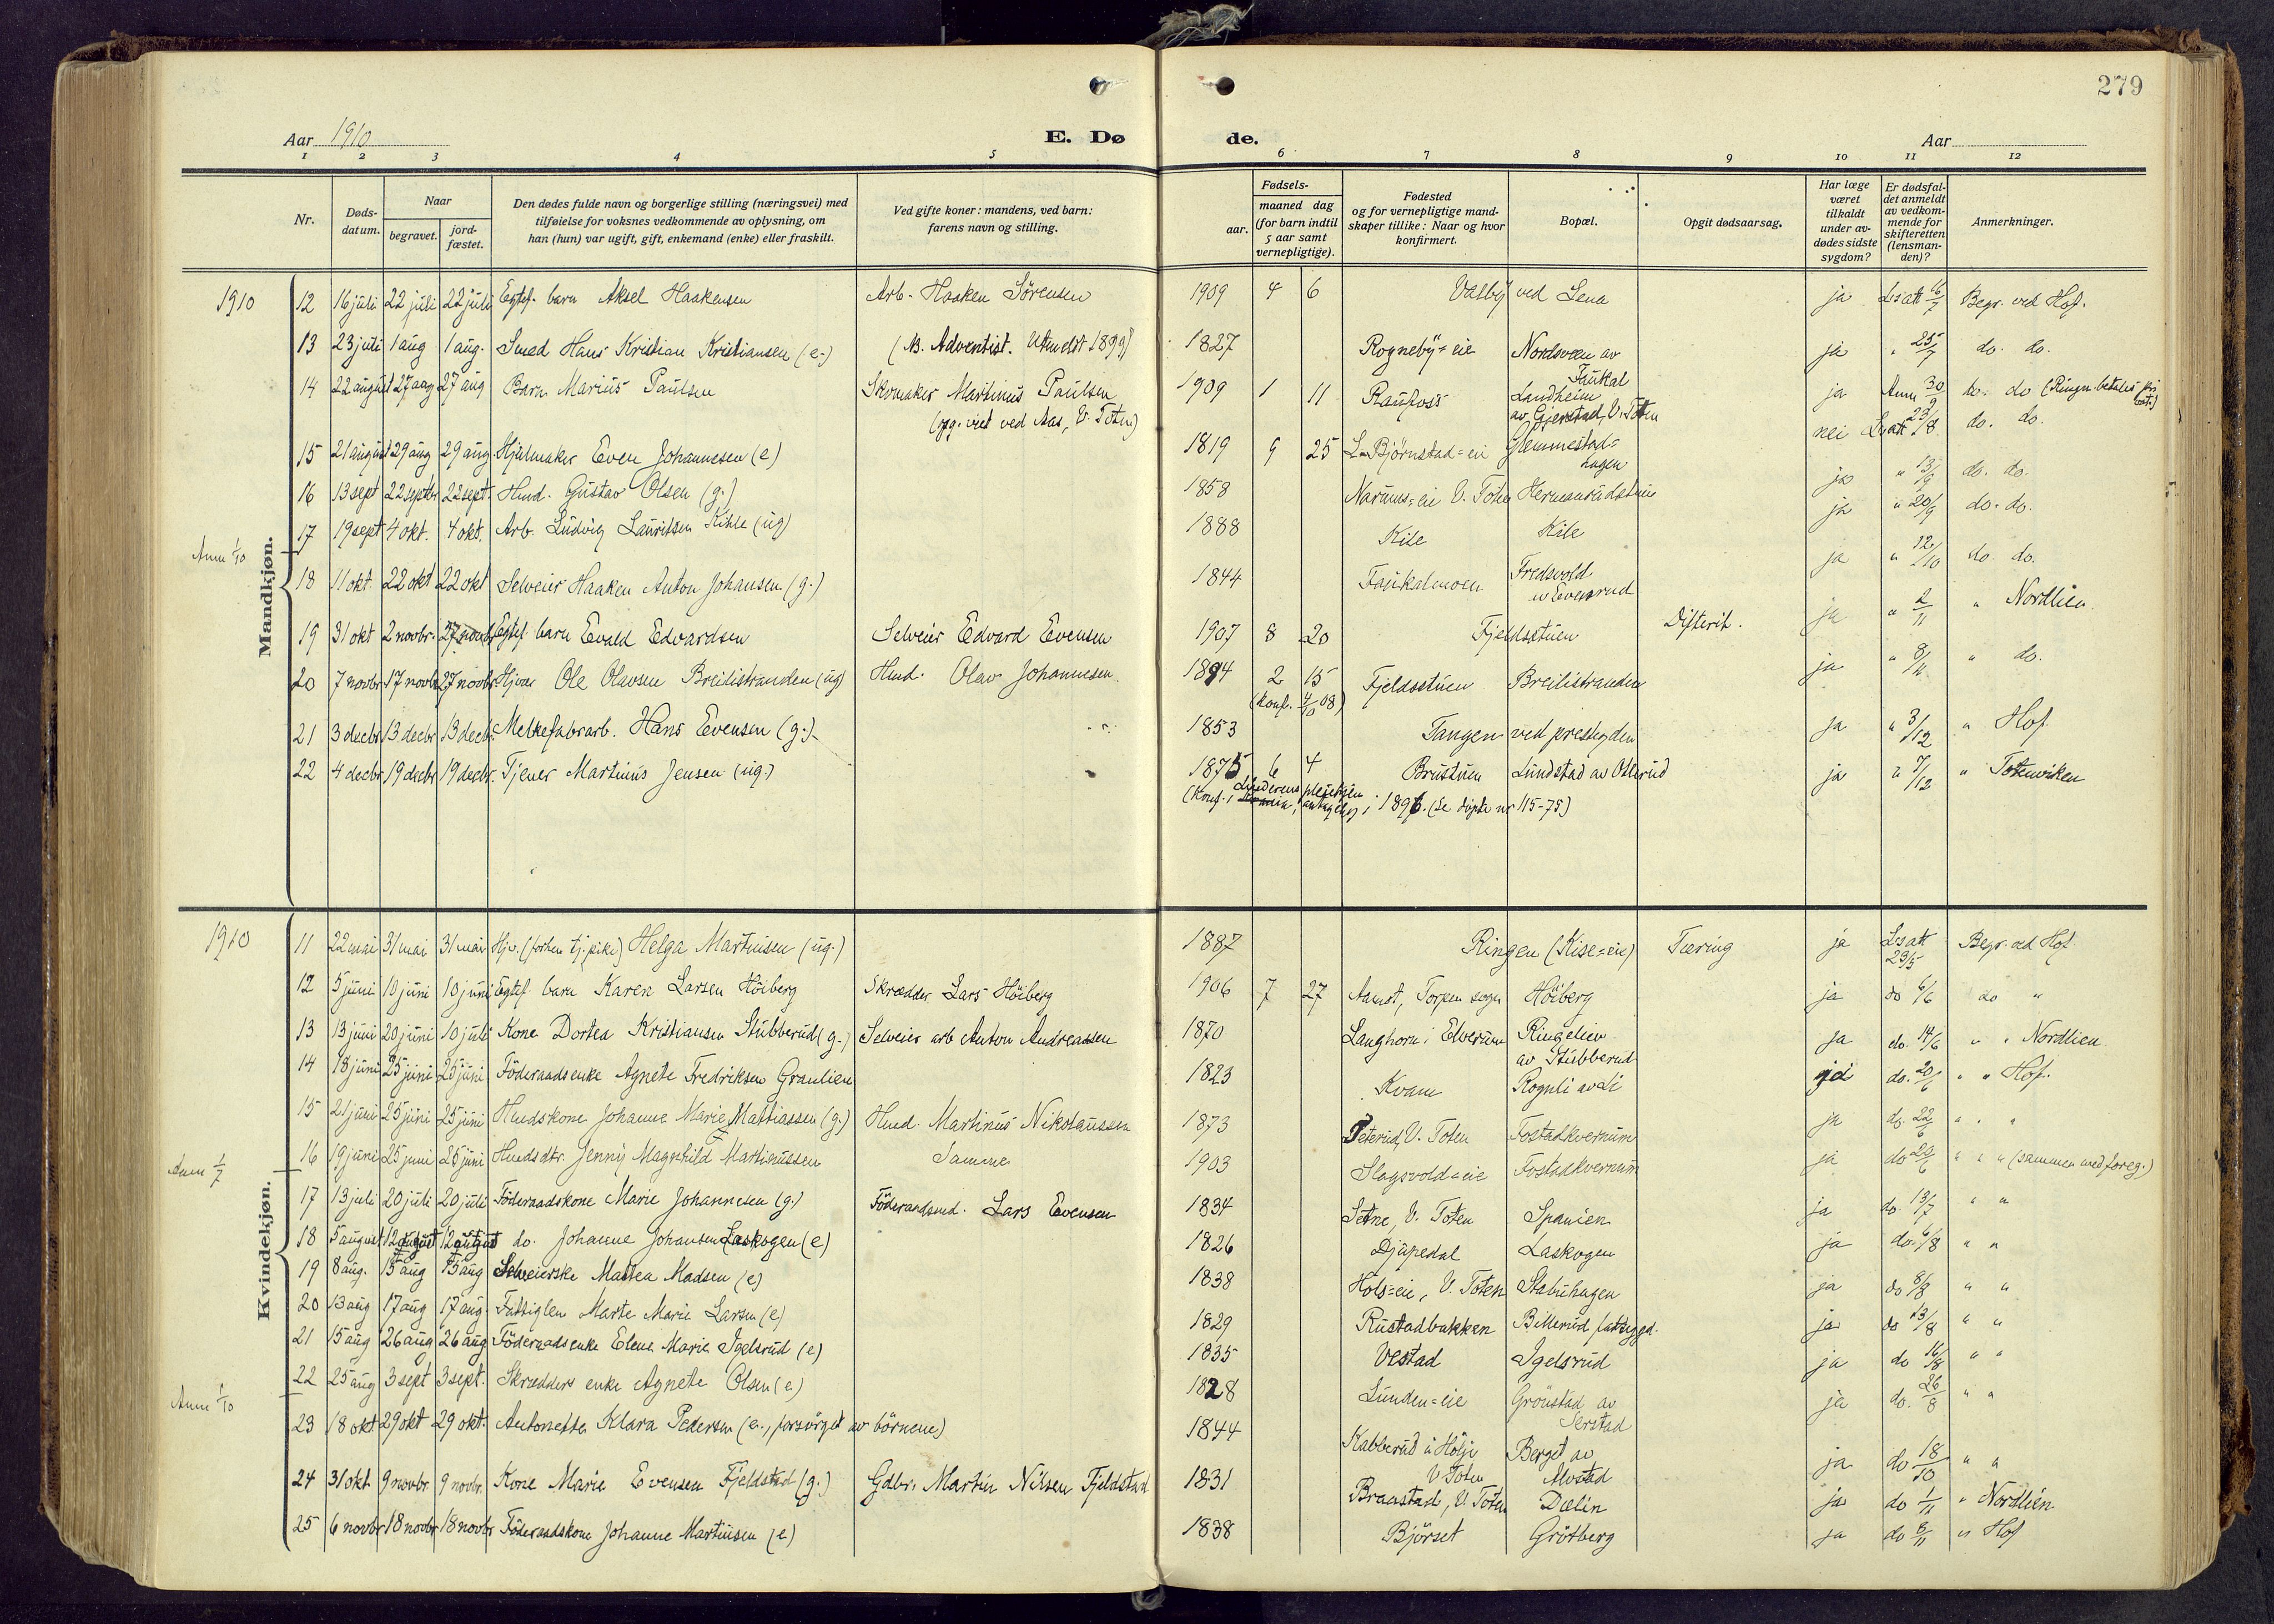 279
Aar 1910 E. Dø de. Aar
1 2 3 4 5 6 7 8 9 10 11 12
Nr. Døds-datum. Naar begravet. jord-fæstet. Den dødes fulde navn og borgerlige stilling (næringsvei) med tilføielse for voksnes vedkommende av oplysning, om han (hun) var ugift, gift, enkemand (enke) eller fraskilt. Ved gifte koner: mandens, ved barn: farens navn og stilling. Fødsels- aar. maaned dag (for barn indtil 5 aar samt vernepligtige). Fødested og for vernepligtige mand-skaper tillike: Naar og hvor konfirmert. Bopæl. Opgit dødsaarsag. Har læge været tilkaldt under av-dødes sidste sygdom? Er dødsfal-det anmeldt av vedkom-mende for skifteretten (lensman-den)? Anmerkninger.
Mandkjøn.
1910 12 16 juli 22 juli 22 juli Egtef. barn Aksel Haakensen Arb. Haaken Sörensen 1909 4 6 Valby ved Lena ja Lsatt 16/7 Begr. ved Hof.
13 23 juli 1 aug 1 aug. Smed Hans Kristian Kristiansen (e.) (N. Adventist. Utmeldt 1899) 1827 Rogneby=eie Nordsveen av Faukal ja " 25/7 do. do.
14 22 august 27 aug 27 aug Barn Marius Paulsen Skomaker Martinus Paulsen 1909 1 11 Raufoss Landheim av Gjerstad, V. Toten ja Anm 30/9 do. do (Ringn. betales
(og. viet ved Aas, V. Toten)
15 21 august 29 aug 29 aug Hjulmaker Even Johannesen (e) 1819 9 25 L. Bjørnstad=eie Glemmestad=hagen nei Lsatt 23/8 do. do.
16 13 sept 22 septbr 22 sept Hmd. Gustav Olsen (g.) 1858 Narums=eie V. Toten Hermanrudstuen ja " 13/9 do. do.
17 19 sept 4 okt. 4 okt. Arb. Ludvig Lauritsen Kihle (ug) 1888 Kile Kile ja " 20/9 do. do.
Anm 1/10
18 11 okt 22 okt 22 okt Selveier Haaken Anton Johansen (g.) 1844 Faukalmoen Fredsvold u/Evensrud ja " 12/10 do do.
19 31 okt 2 novbr. 27 novbr Egtef. barn Evald Edvardsen Selveier Edvard Evensen 1907 8 20 Fjeldsstuen Difterit. ja " 2/11 " Nordlien
20 7 novbr 17 novbr 27 novbr Hjvær. Ole Olavsen Breilistranden (ug) Hmd. Olav Johannesen 1894 2 15 Fjeldsstuen Breilistranden ja " 8/11 " do.
(Konf. 4/10 08)
21 3 decbr 13 decbr 13 decbr. Melkefabrarb. Hans Evensen (g.) 1853 Tangen ved prestegden ja " 3/12 " Hof
22 4 decbr 19 decbr 19 decbr. Tjener Martinus Jensen (ug.) 1875 6 4 Brustuen Lundstad av Osterud ja " 7/12 " Totenviken
(Konf. i Kristiania, antagelig i 1891. (Se döpte nr 115-75)
Kvindekjøn.
1910 11 22 mai 31 mai 31 mai Hjv. (forhen tj.pike) Helga Martinsen (ug.) 1887 Ringen (Kise=eie) Tæring ja Lsatt 23/5 Begr. ved Hof.
12 5 juni 10 juni 10 juni Egtef. barn Karen Larsen Höiberg Skrædder Lars Höiberg 1906 7 27 Aamot, Torpen sogn Höiberg ja do 6/6 do "
13 13 juni 20 juni 10 juli Kone Dortea Kristiansen Stubberud (g.) Selveier arb Anton Andreassen 1870 Langhorn i Elverum Ringelien av Stubberud ja do. 14/6 " " Nordlien
14 18 juni 25 juni 25 juni Föderaadsenke Agnete Fredriksen Granlien 1823 Kvam Rognli av Li ja do. 20/6 " " Hof.
15 21 juni 25 juni 25 juni Hmdskone Johanne Marie Mattiassen (g.) Hmd. Martinus Nikolaussen 1873 Peterud, V. Toten Fostadkvernum ja do. 22/6 " " "
16 19 juni 25 juni 25 juni Hmdsdtr. Jenny Magnhild Martinussen Samme 1903 Slagsvold=eie Fostadkvernum ja do 22/6 " " " (sammen med foreg.)
Anm 1/7
17 13 juli 20 juli 20 juli Föderaadskone Marie Johannesen (g.) Föderaadsmd. Lars Evensen 1834 Setne, V. Toten Spanien ja do. 13/7 " "
18 5 august 12 august 12 august do. Johanne Johansen Laskogen (e) 1826 Djupedal Laskogen ja do. 6/8 " "
19 8 aug. 15 aug 15 aug Selveierske Mattea Madsen (e) 1838 Hols=eie, V. Toten Stabuhagen ja do 8/8 " "
20 13 aug 17 aug 17 aug. Fattiglem Marte Marie Larsen (e) 1829 Rustadbakken Billerud fattiggd. ja do 13/8 " "
21 15 aug 26 aug 26 aug Föderaadsenke Elene Marie Igelsrud (e) 1835 Vestad Igelsrud ja do 16/8 " "
22 25 aug 3 sept 3 sept. Skrædders enke Agnete Olsen (e) 1828 Lunden=eie Grönstad av Serstad ja do. 26/8 " "
Anm 1/10
23 18 okt 29 okt 29 okt. Antonette Klara Pedersen (e., forsörget av börnene) 1844 Kabberud i Hölje V Toten Berget av Alvstad ja do 18/10 " "
24 31 okt 9 novbr 9 novbr. Kone Marie Evensen Fjeldstad (g.) Gdbr. Martin Nilsen Fjeldstad 1831 Braastad, V. Toten Dælin ja do 1/11 " Nordlien
25 6 novbr 18 novbr 18 novbr Föderaadskone Johanne Martinsen (e) 1838 Björset Grötberg ja do 8/11 " Hof